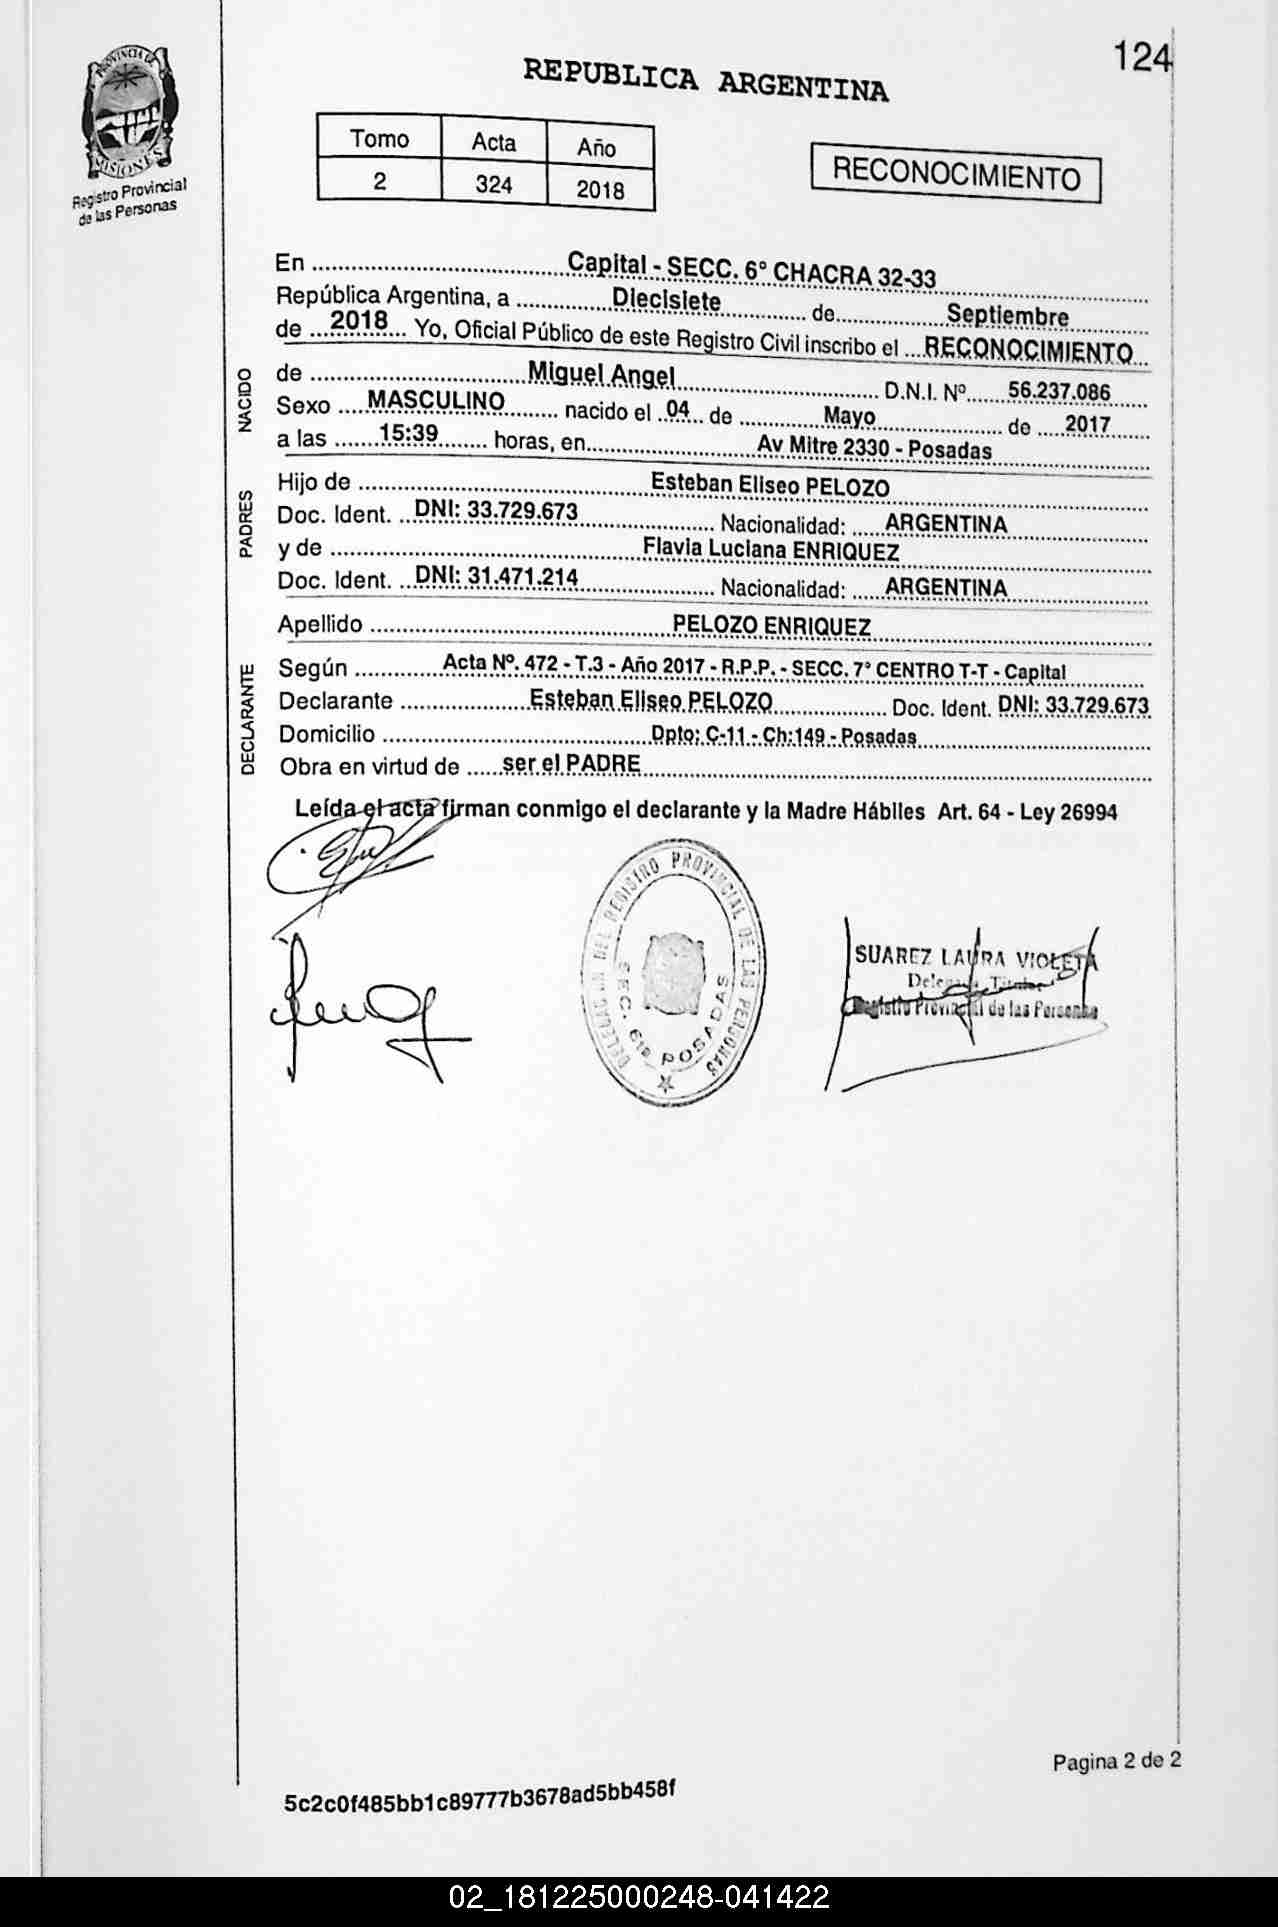 124
REPUBLICA ARGENTINA
PROVINCIA DE
MISIONES
Registro Provincial
de las Personas
Tomo Acta Año
2 324 2018
RECONOCIMIENTO
En ........ Capital - SECC. 6° CHACRA 32-33 ........
República Argentina, a ........ Diecisiete ........ de ........ Septiembre
de ... 2018 ... Yo, Oficial Público de este Registro Civil inscribo el ... RECONOCIMIENTO ...
NACIDO
de ........ Miguel Angel ........ D.N.I. Nº ...... 56.237.086 ......
Sexo .... MASCULINO ........ nacido el .. 04 .. de ........ Mayo ........ de ..... 2017 ......
a las ...... 15:39 ........ horas, en ........ Av Mitre 2330 - Posadas ........
PADRES
Hijo de ........ Esteban Eliseo PELOZO ........
Doc. Ident. .. DNI: 33.729.673 ........ Nacionalidad: ..... ARGENTINA ........
y de ........ Flavia Luciana ENRIQUEZ ........
Doc. Ident. .. DNI: 31.471.214 ........ Nacionalidad: ..... ARGENTINA ........
Apellido ........ PELOZO ENRIQUEZ ........
DECLARANTE
Según ........ Acta Nº. 472 - T.3 - Año 2017 - R.P.P. - SECC. 7° CENTRO T-T - Capital ........
Declarante ........ Esteban Eliseo PELOZO ........ Doc. Ident. DNI: 33.729.673
Domicilio ........ Dpto: C-11 - Ch:149 - Posadas ........
Obra en virtud de ...... ser el PADRE ........
Leída el acta firman conmigo el declarante y la Madre Hábiles Art. 64 - Ley 26994
DELEGACION DEL REGISTRO PROVINCIAL DE LAS PERSONAS
SEC. 6ta POSADAS
SUAREZ LAURA VIOLETA
Delegada Titular
Registro Provincial de las Personas
Pagina 2 de 2
5c2c0f485bb1c89777b3678ad5bb458f
02_181225000248-041422